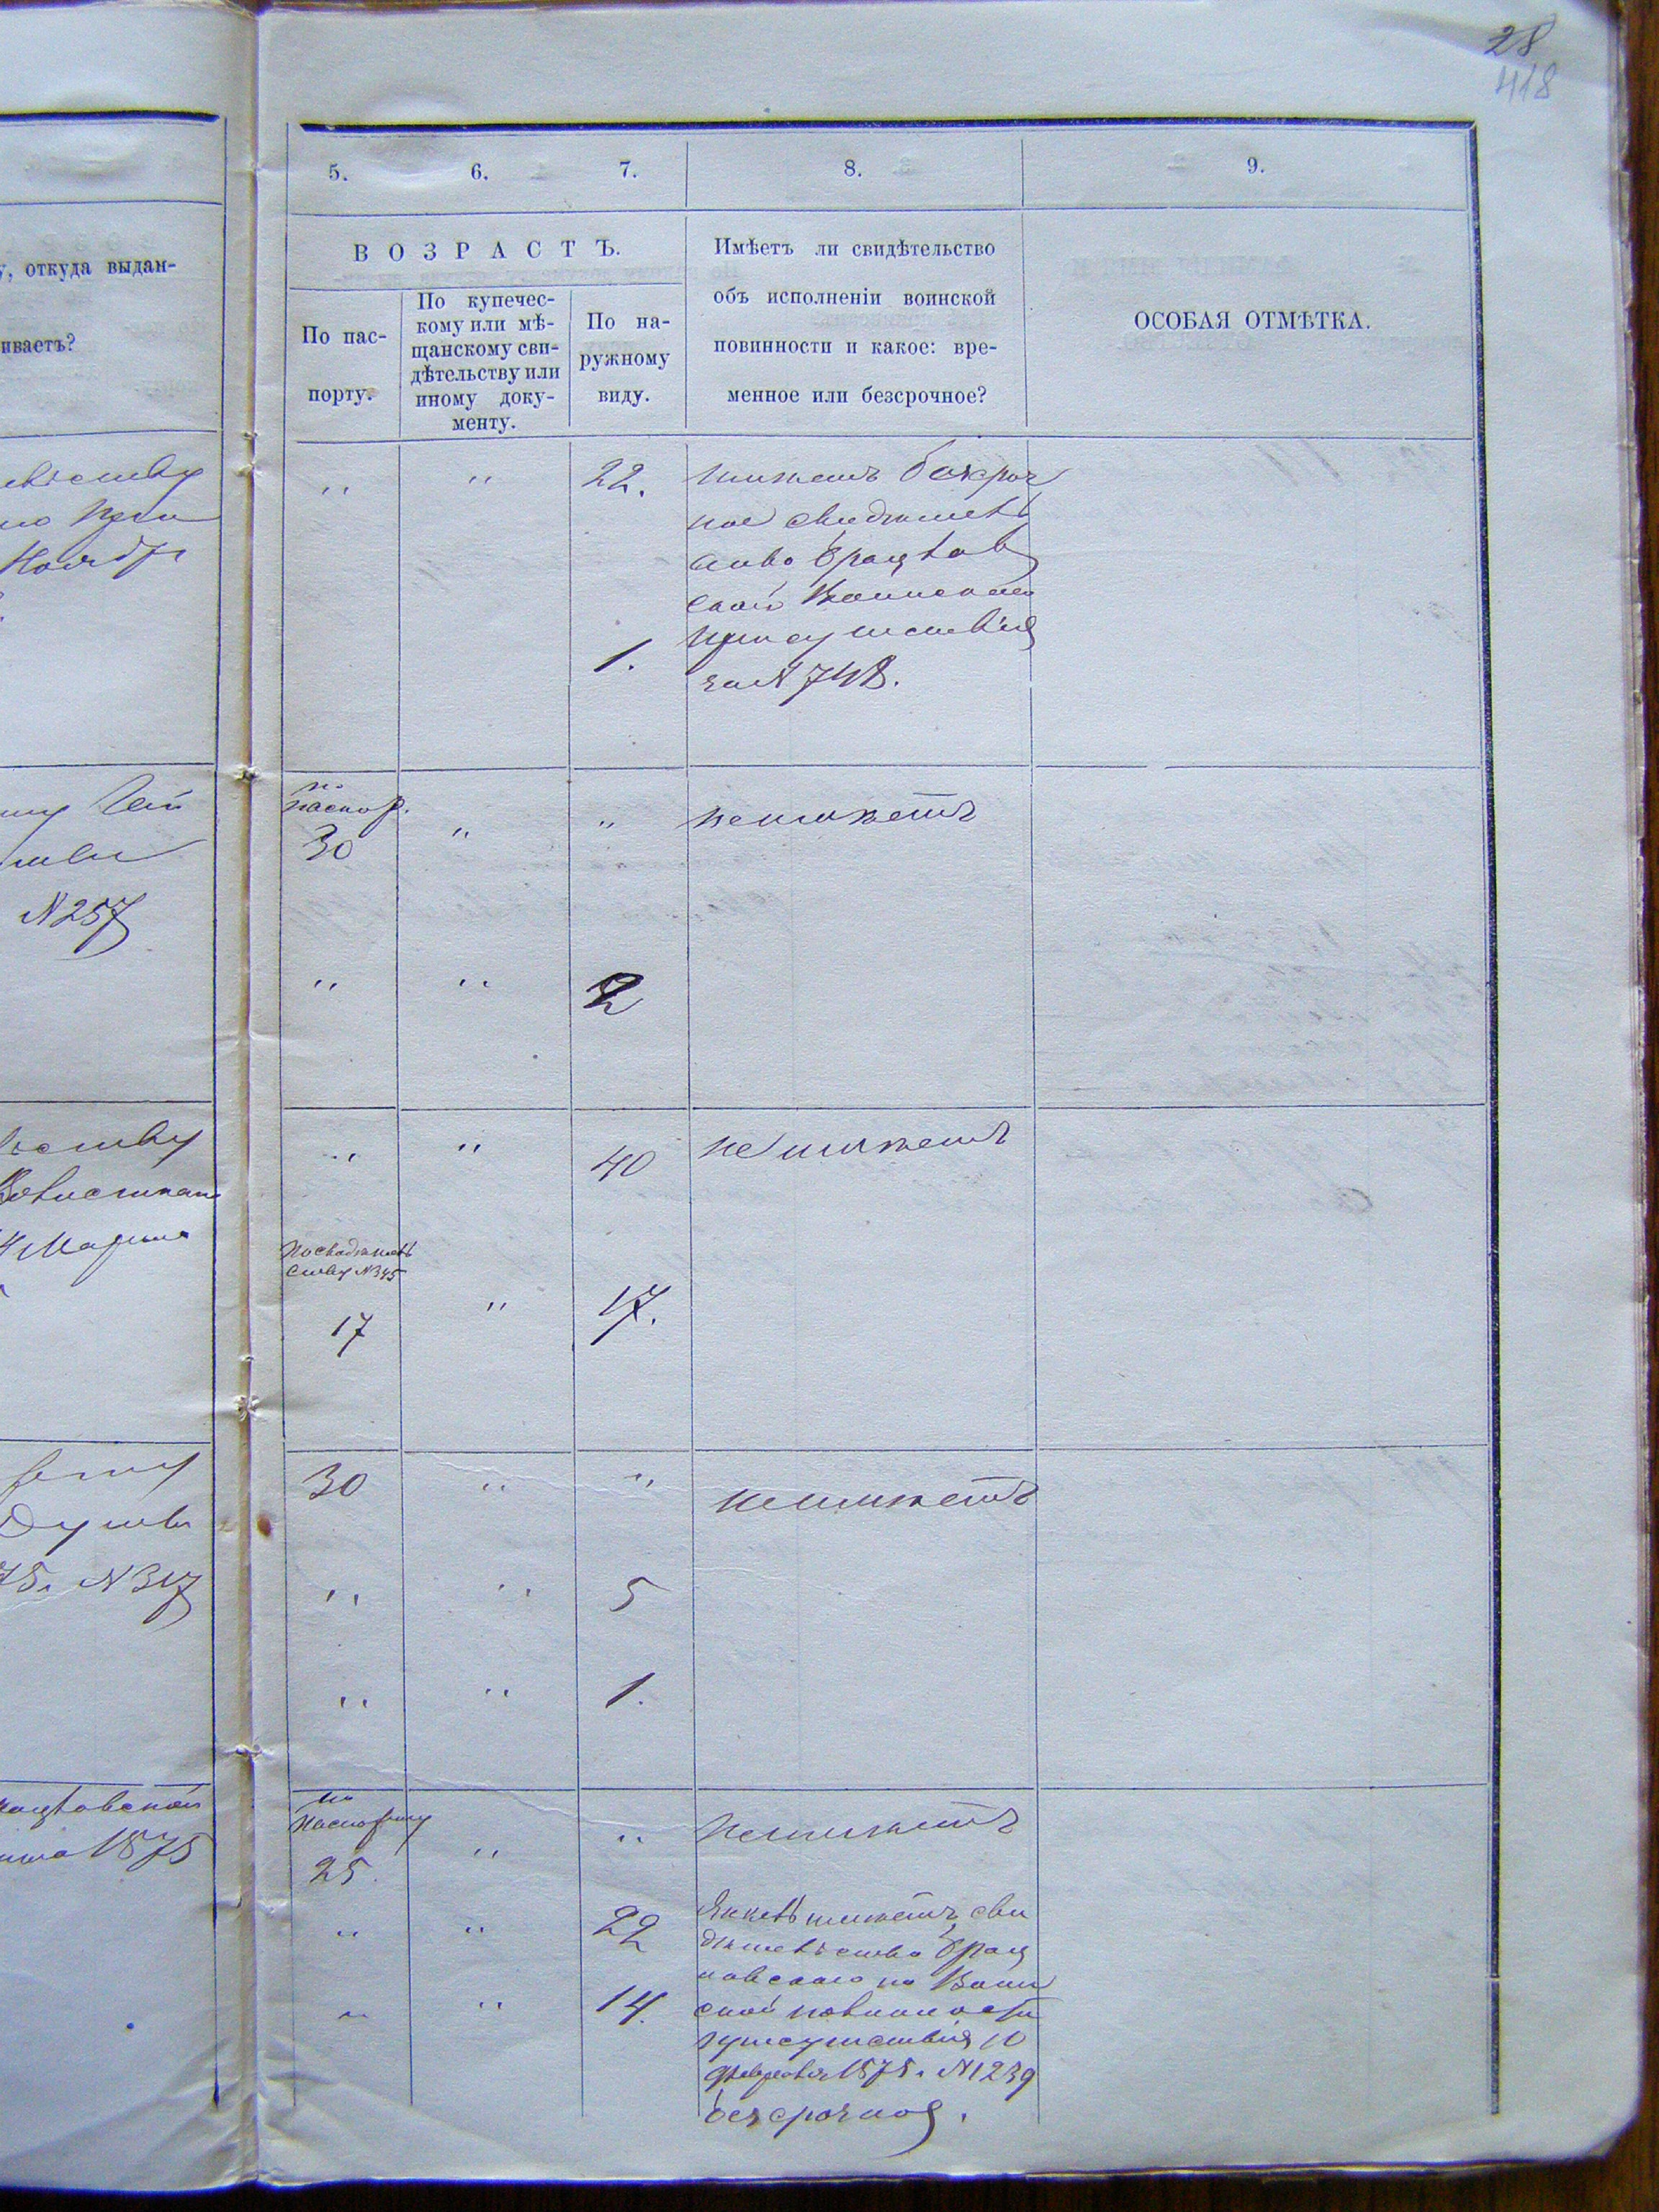 28
418
5. 6. 7. 8. 9.
у, откуда выдан-
иваетъ?
ВОЗРАСТЪ.
По пас-
порту.
По купечес-
кому или мѣ-
щанскому сви-
дѣтельству или
иному доку-
менту.
По на-
ружному
виду.
Имѣетъ ли свидѣтельство
объ исполненіи воинской
повинности и какое: вре-
менное или безсрочное?
ОСОБАЯ ОТМѢТКА.
Ноября
" " 22. имѣетъ безсроч
ное свидѣтель
ство Брацлав
Воинскаго
присутствія
1.
за № 748.
№ 257
по
паспор.
30 " " неимѣетъ
" " 2
Марта
" " 40 не имѣетъ
По свидѣтель
ству № 345
17 " 17.
75. № 317
30 " " неимѣетъ
" " 5
" " 1.
1875
по
паспорту
25. " " неимѣетъ
" " 22
" " 14.
имѣетъ сви
дѣтельство Брац
лавскаго по Воин
ской повинности
присутствія 10
февраля 1875. № 1239
безсрочное.